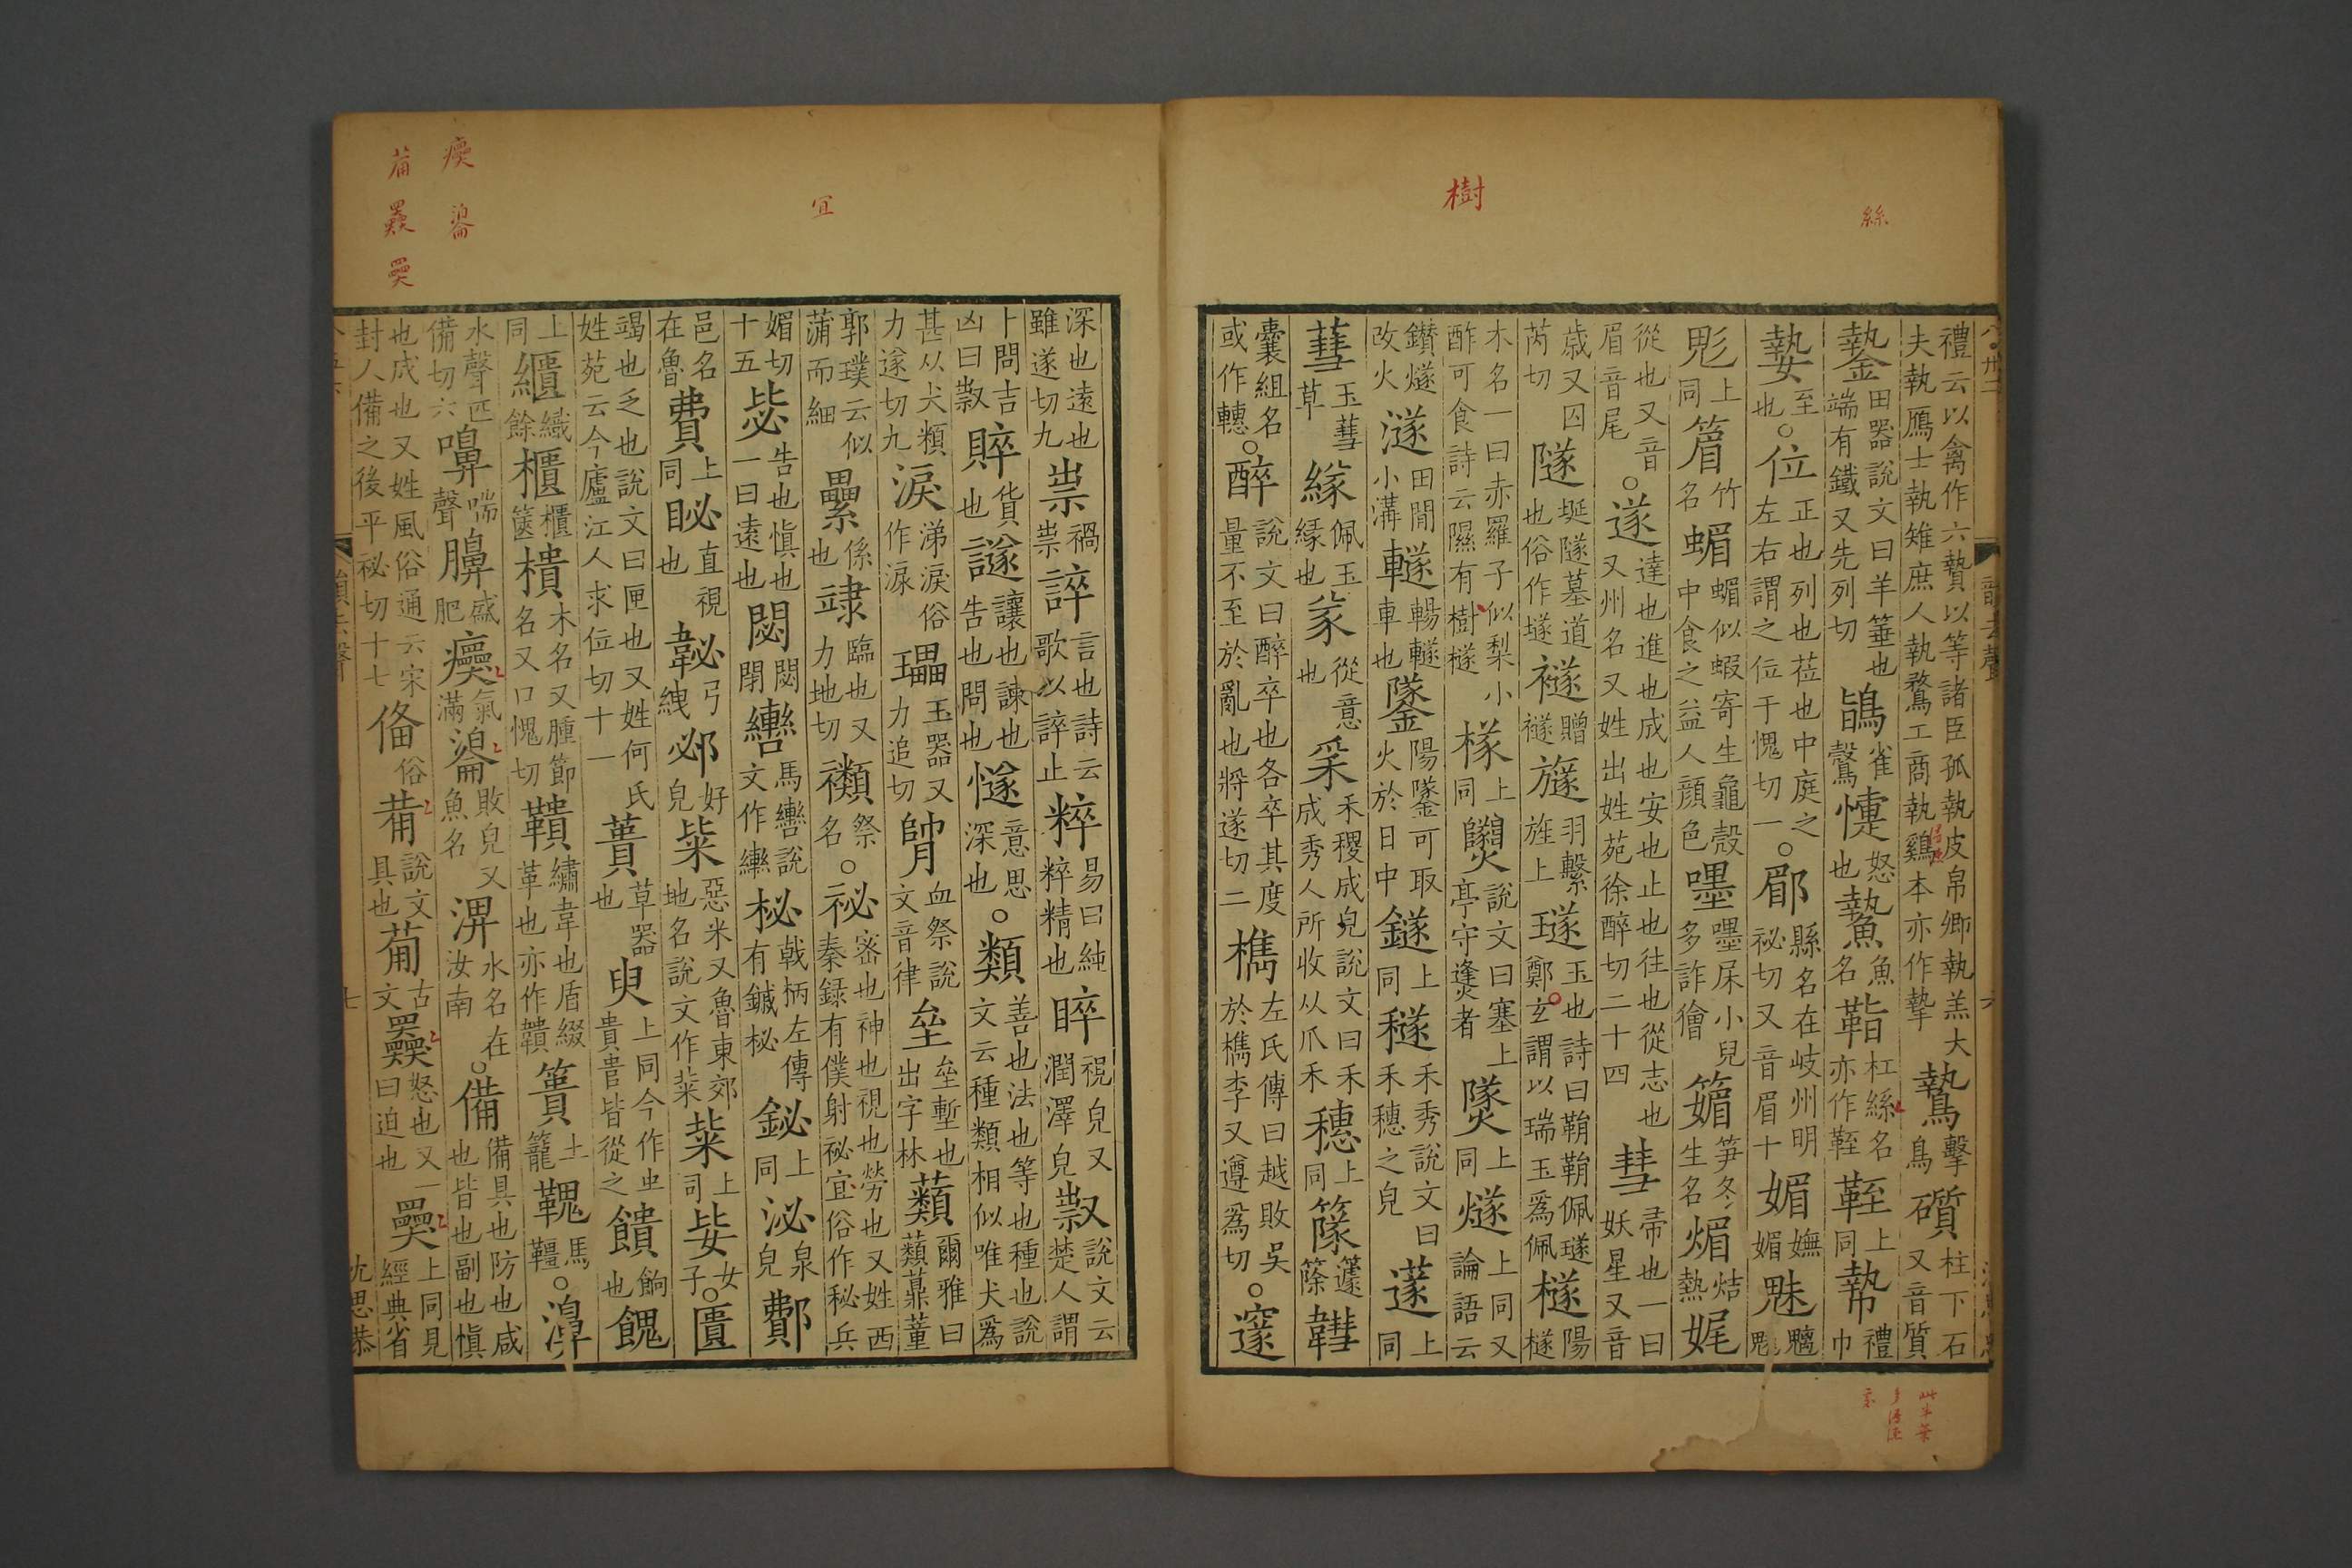 絲
樹
禮云以禽作六贄以等諸臣孤執皮帛卿執羔大夫執鴈士執雉庶人執鶩工商執雞本亦作摯 鷙擊鳥 礩柱下石又音質
𨮹田器說文曰羊箠也端有鐵又先列切 鴲雀鷙 懥怒也 䲀魚名 䩢杠絲名亦作䩫 䩫上同 㡇禮巾
㜼至也○位正也列也莅也中庭之左右謂之位于愧切一○郿縣名在岐州明祕切又音眉十 媚嫵媚 魅魑魅
鬽上同 篃竹名 蝞蝞似蝦寄生龜殼中食之益人顏色 嚜嚜㞘小兒多詐獪 䉋笋冬生名 煝焅熱 娓
從也又音眉音尾○遂達也進也成也安也止也往也從志也又州名又姓出姓苑徐醉切二十四 彗帚也一曰妖星又音
歲又囚芮切 隧埏隧墓道也俗作墜 禭贈禭 旞羽繫旌上 璲玉也詩曰鞙鞙佩璲鄭玄謂以瑞玉爲佩 檖陽檖
木名一曰赤羅子似梨小酢可食詩云隰有樹檖 㯌上同 𨽵說文曰塞上亭守㷭者 㸂上同 燧上同又論語云
鑽燧改火 澻田閒小溝 䡵轊䡵車也 鐆陽鐆可取火於日中 鐩上同 穟禾秀說文曰禾穗之皃 蓫上同
䔹玉䔹草 繸佩玉緣也 㒸從意也 采禾稷成皃說文曰禾成秀人所收从爪禾 穗上同 䉌籧篨 韢
囊組名或作轊○醉說文曰醉卒也各卒其度量不至於亂也將遂切二 檇左氏傳曰越敗吳於檇李又遵爲切○邃
宜
㾽 㵒
𤰈 𡚤 奰
深也遠也雖遂切九 祟禍祟 誶言也詩云歌以誶止 粹易曰純粹精也 睟視皃又潤澤皃 𣤶說文云楚人謂
卜問吉凶曰𣤶 賥貨也 譢讓也諫也告也問也 㥞意思深也○類善也法也等也種也說文云種類相似唯犬爲
甚从犬頪力遂切九 淚涕淚俗作泪 㼍玉器又力追切 膟血祭說文音律 垒垒墼也出字林 蘱爾雅曰蘱薡蕫
郭璞云似蒲而細 纍係也 隷臨也又力地切 禷祭名○祕密也神也視也勞也又姓西秦録有僕射祕宜俗作秘兵
媚切十五 毖告也愼也一曰遠也 閟閟閉 轡馬轡說文作䜌 柲戟柄左傳有鏚柲 鉍上同 泌泉皃 鄪
邑名在魯 費上同 眍直視也 䩛弓紲 邲好皃 粊惡米又魯東郊地名說文作粊 䊧上同 㚰女子○匱
竭也乏也說文曰匣也又姓何氏姓苑云今廬江人求位切十一 蕢草器也 臾上同今作虫貴𧶠皆從之 饋餉也 餽
上同 繢織餘 櫃櫃篋 樻木名又腫節名又口愧切 鞼繡韋也盾綴革也亦作韇 簣土籠 䩡馬䪊○濞
水聲匹備切六 嚊喘聲 膞盛肥 㿙氣滿 㵒敗皃又魚名 淠水名在汝南○備備具也防也咸也皆也副也愼
也成也又姓風俗通云宋封人備之後平祕切十七 俻俗 𤰈說文具也 𤰇古文 𡚤怒也又一曰迫也 奰上同見經典省